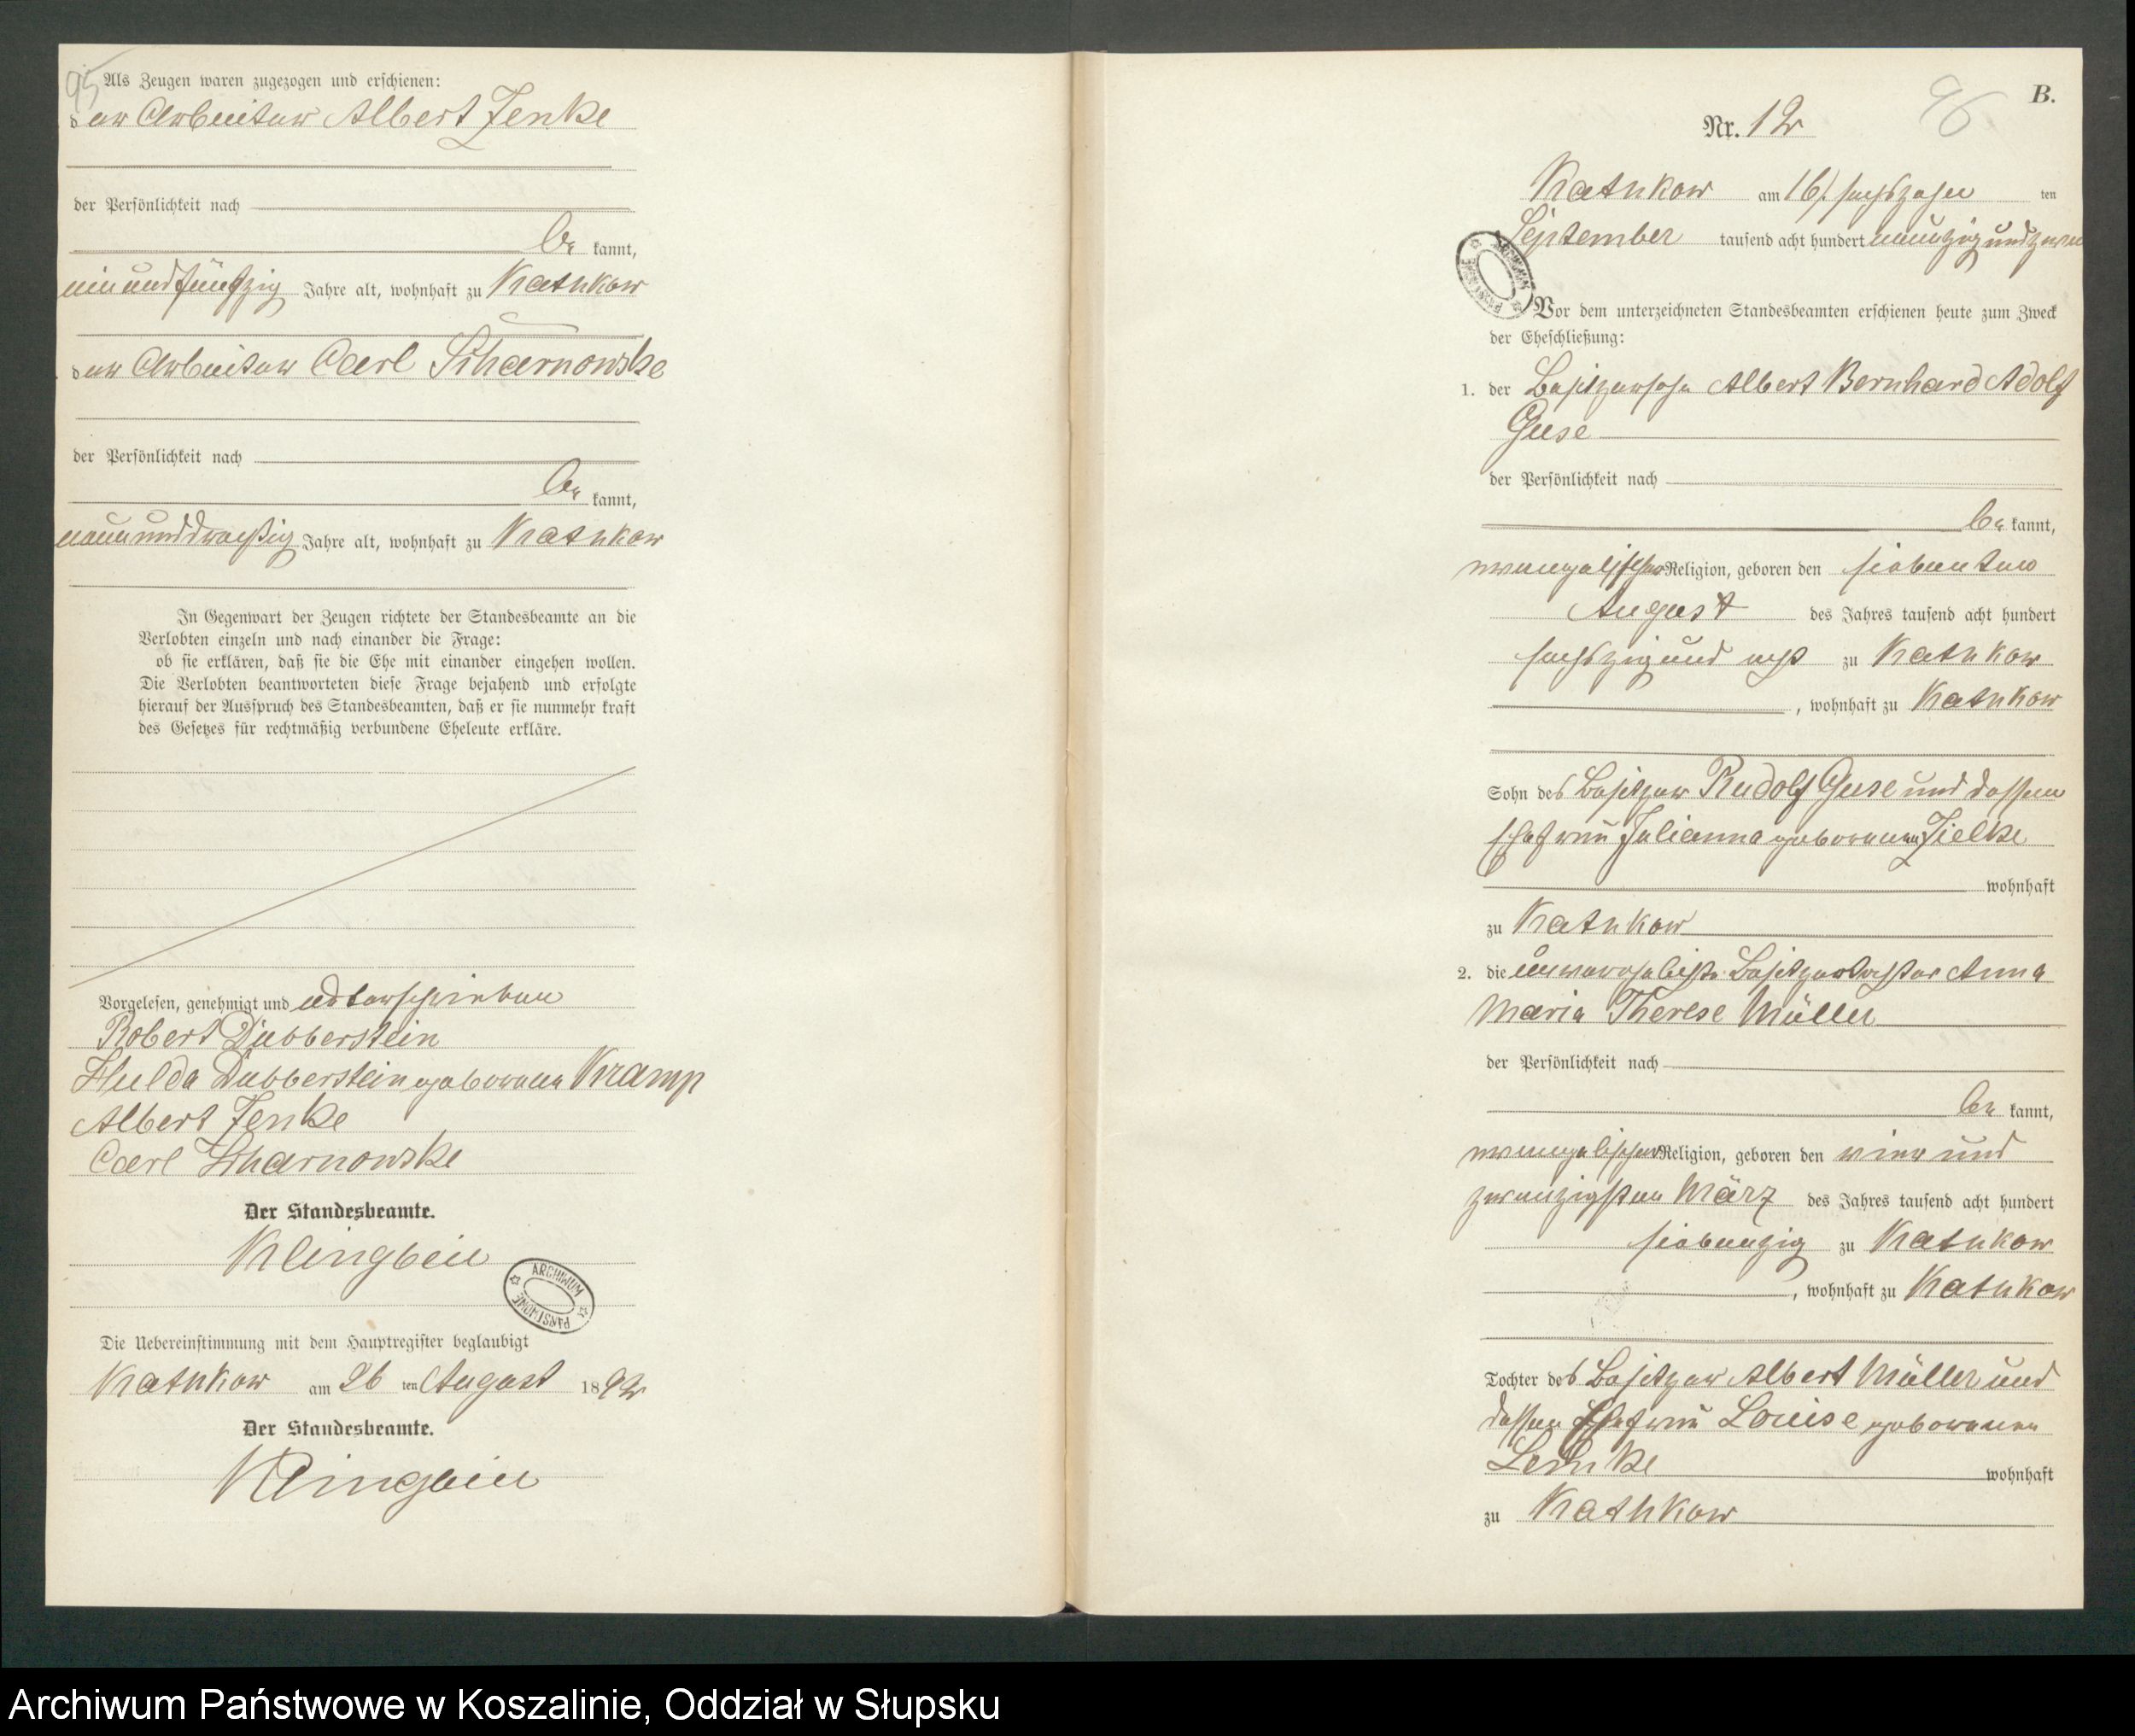 95
Als Zeugen waren zugezogen und erschienen:
der Arbeiter Albert Jenke
der Persönlichkeit nach
be kannt,
ein und fünfzig Jahre alt, wohnhaft zu Kathkow
der Arbeiter Carl Scharnowske
der Persönlichkeit nach
be kannt,
neun und dreißig Jahre alt, wohnhaft zu Kathkow
In Gegenwart der Zeugen richtete der Standesbeamte an die
Verlobten einzeln und nach einander die Frage:
ob sie erklären, daß sie die Ehe mit einander eingehen wollen.
Die Verlobten beantworteten diese Frage bejahend und erfolgte
hierauf der Ausspruch des Standesbeamten, daß er sie nunmehr kraft
des Gesetzes für rechtmäßig verbundene Eheleute erkläre.
Vorgelesen, genehmigt und unterschrieben
Robert Dubberstein
Hulda Dubberstein geborene Kramp
Albert Jenke
Carl Scharnowske
Der Standesbeamte.
Klingbeil
ARCHIWUM PAŃSTWOWE
Die Uebereinstimmung mit dem Hauptregister beglaubigt
Kathkow am 26 ten August 1892
Der Standesbeamte.
Klingbeil
B.
96
Nr. 12
Kathkow am 16. sechszehn ten
September tausend acht hundert neunzig und zwei
ARCHIWUM PAŃSTWOWE
Vor dem unterzeichneten Standesbeamten erschienen heute zum Zweck
der Eheschließung:
1. der Besitzersohn Albert Bernhard Adolf
Guse
der Persönlichkeit nach
be kannt,
evangelischer Religion, geboren den siebenten
August des Jahres tausend acht hundert
sechszig und acht zu Kathkow
, wohnhaft zu Kathkow
Sohn des Besitzer Rudolf Guse und dessen
Ehefrau Julianna geborenen Zielke
wohnhaft
zu Kathkow
2. die unverehelichte Besitzertochter Anna
Maria Therese Müller
der Persönlichkeit nach
be kannt,
evangelischer Religion, geboren den vier und
zwanzigsten März des Jahres tausend acht hundert
siebenzig zu Kathkow
, wohnhaft zu Kathkow
Tochter des Besitzer Albert Müller und
dessen Ehefrau Louise geborenen
Lemke wohnhaft
zu Kathkow
Archiwum Państwowe w Koszalinie, Oddział w Słupsku